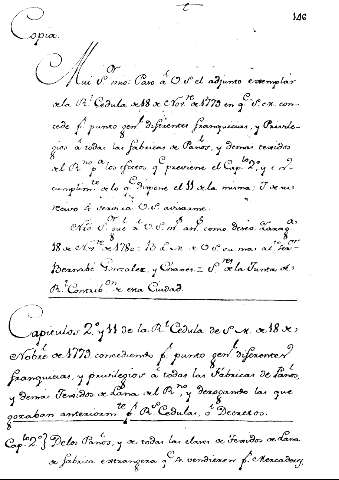 146
Copia.
Mui Sᵒʳ mio: Paso â V S el adjunto exemplar
de la Rˡ Cedula de 18 de Novᵉ de 1779 en qᵉ S. M. con-
cede pʳ punto genˡ diferentes franquicias, y Privile-
gios â todas las fabricas de Paños, y demas texidos
del Rⁿᵒ pᵃ los efectos qᵉ previene el Capᵗᵒ 2º, y en
cumplimᵗᵒ de lo qᵉ dispone el 11 de la misma: I de su
recivo se servirá V. S. avisarme.
Nro Sʳ gᵈᵉ â V S mˢ añˢ como deseo Zaragᵃ
18 de Novʳᵉ de 1780: B. L. M. de V S su mas atᵗᵒ Servᵒʳ
Bernabé Gonzalez, y Chaves = Sʳᵉˢ de la Junta de
Rˡ Contribᵒⁿ de esta Ciudad.
Capitulos 2º y 11 de la Rˡ Cedula de S. M. de 18 de
Nobrᵉ de 1779 concediendo pʳ punto genˡ diferentes
franquicias, y privilegios â todas las Fabricas de Paños,
y demas Texidos de Lana del Rⁿᵒ, y derogando las que
gozaban anteriormᵗᵉ pʳ Rˢ Cedulas, o Decretos.
Capᵗᵒ 2º} De los Paños, y de todas las clases de Texidos de Lana
de fabrica extrangera qᵉ se vendieren pʳ Mercaderes